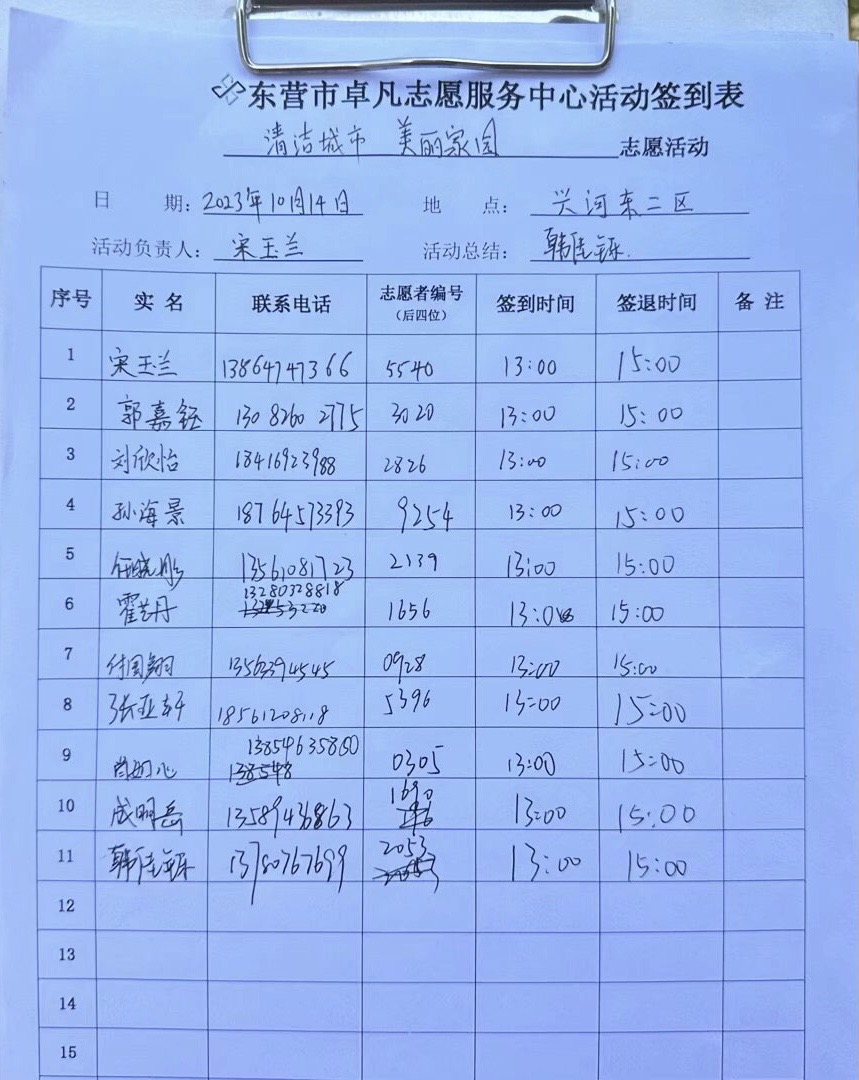 东营市卓凡志愿服务中心活动签到表
清洁城市 美丽家园 志愿活动
日 期: 2023年10月14日 地 点: 兴河东二区
活动负责人: 宋玉兰 活动总结: 韩佳铄.
序号 实 名 联系电话 志愿者编号 (后四位) 签到时间 签退时间 备 注
1 宋玉兰 13864747366 5540 13:00 15:00
2 郭嘉钰 13082602775 3020 13:00 15:00
3 刘欣怡 18416923988 2826 13:00 15:00
4 孙海景 18764573393 9254 13:00 15:00
5 任晓彤 13561081723 2139 13:00 15:00
6 霍艺丹 13280328818 1656 13:00 15:00
7 付国翔 13563394545 0928 13:00 15:00
8 张亚轩 18561208118 5396 13:00 15:00
9 13854635860 0305 13:00 15:00
10 成明岳 13589436863 1690 13:00 15:00
11 韩佳铄 13780767699 2053 13:00 15:00
12
13
14
15